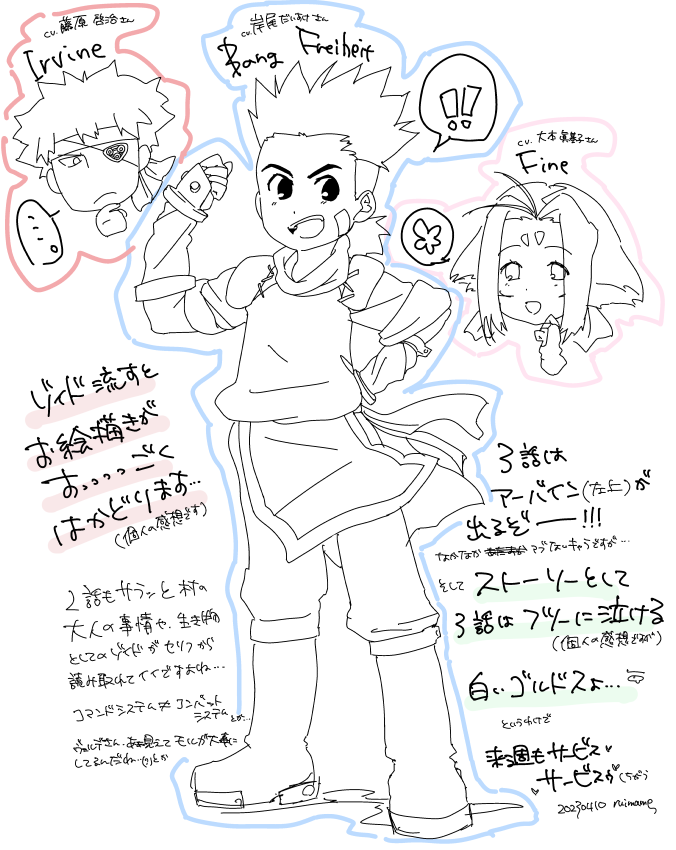 cv. 藤原 啓治さん
Irvine
cv. 岸尾 だいすけ さん
Bang Freiheit
!!
cv. 大本 眞基子さん
Fine
....
ゾイド流すと
お絵描きが
すっっっっごく
はかどります…
(個人の感想です)
2話もサランと村の
大人の事情や、生き物
としてのゾイドがセリフから
読み取れてイイですよね…
コマンドシステム≠コンバット
システムとか…
してるんだね…とか
3話は
アーバイン(左上)が
出るぞーー!!!
なかなか アブないキャラですが…
そして ストーリーとして
3話はフツーに泣ける
(個人の感想ですが)
白いゴルドスよ…
というわけで
来週もサービス♥
サービスゥ(ちがう
20230410 mimame